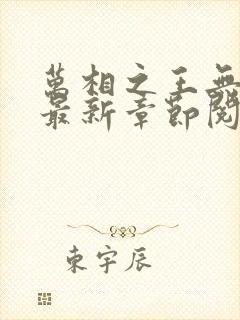 萬相之王無
最新章節閱
東宇辰